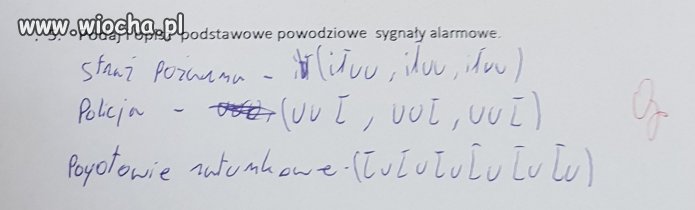 www.wiocha.pl
3. Podaj i opisz podstawowe powodziowe sygnały alarmowe.
Straż pożarna - (iłuu, iłuu, iłuu)
Policja - (UU I, UUI, UUI)
Pogotowie ratunkowe - (IUIUIUIUIUIU)